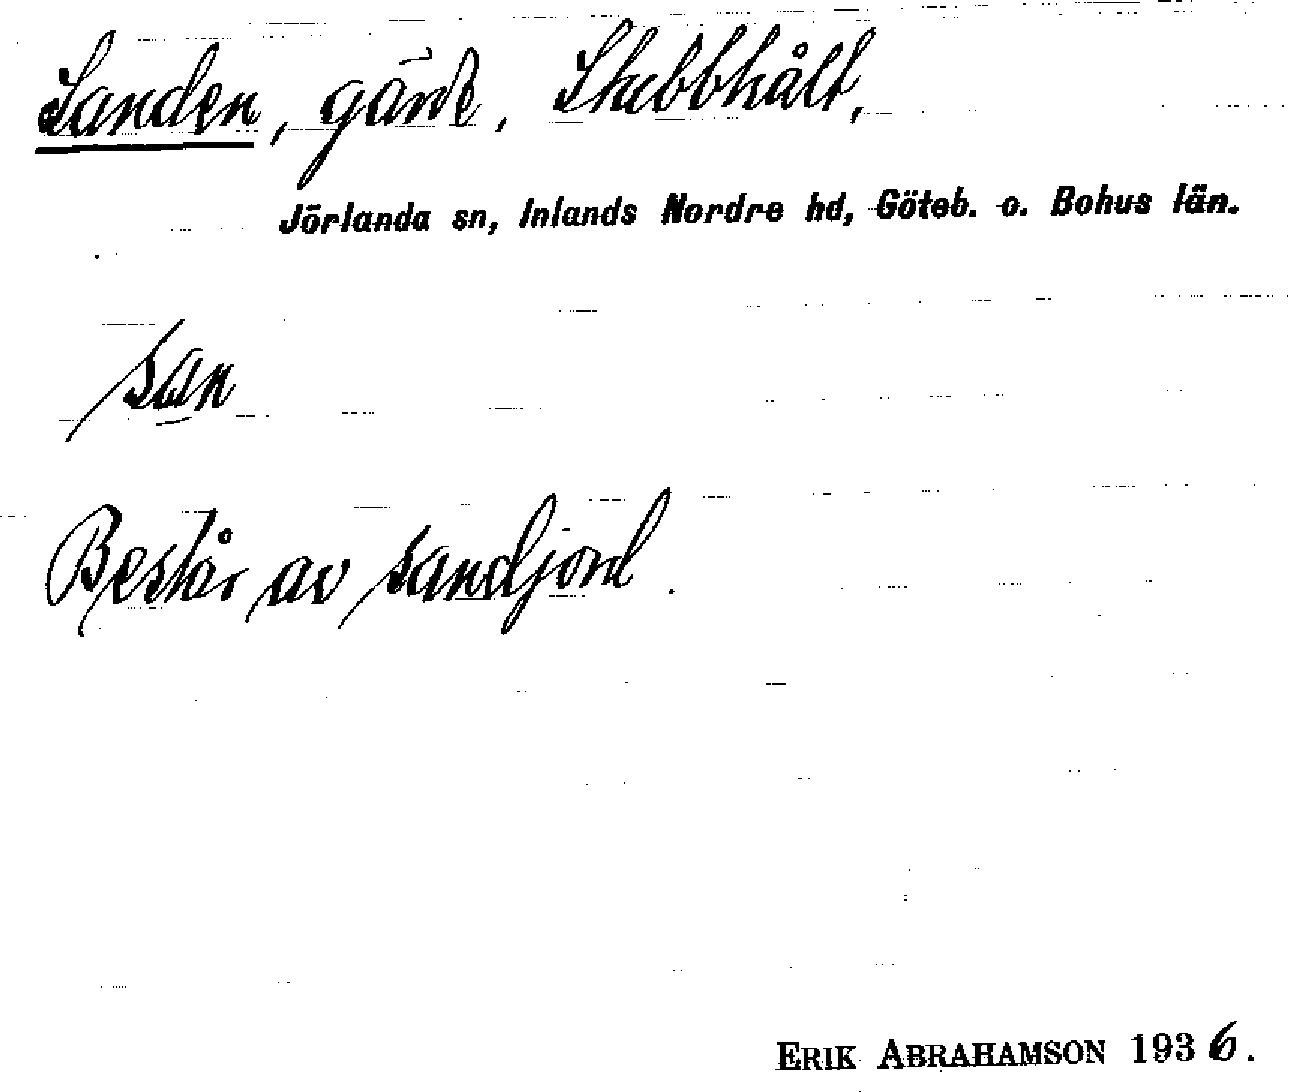 Sanden, gärde, Stubbhålt,
Jörlanda sn, Inlands Nordre hd, Göteb. o. Bohus län.
san
Består av sandjord.
ERIK ABRAHAMSON 1936.